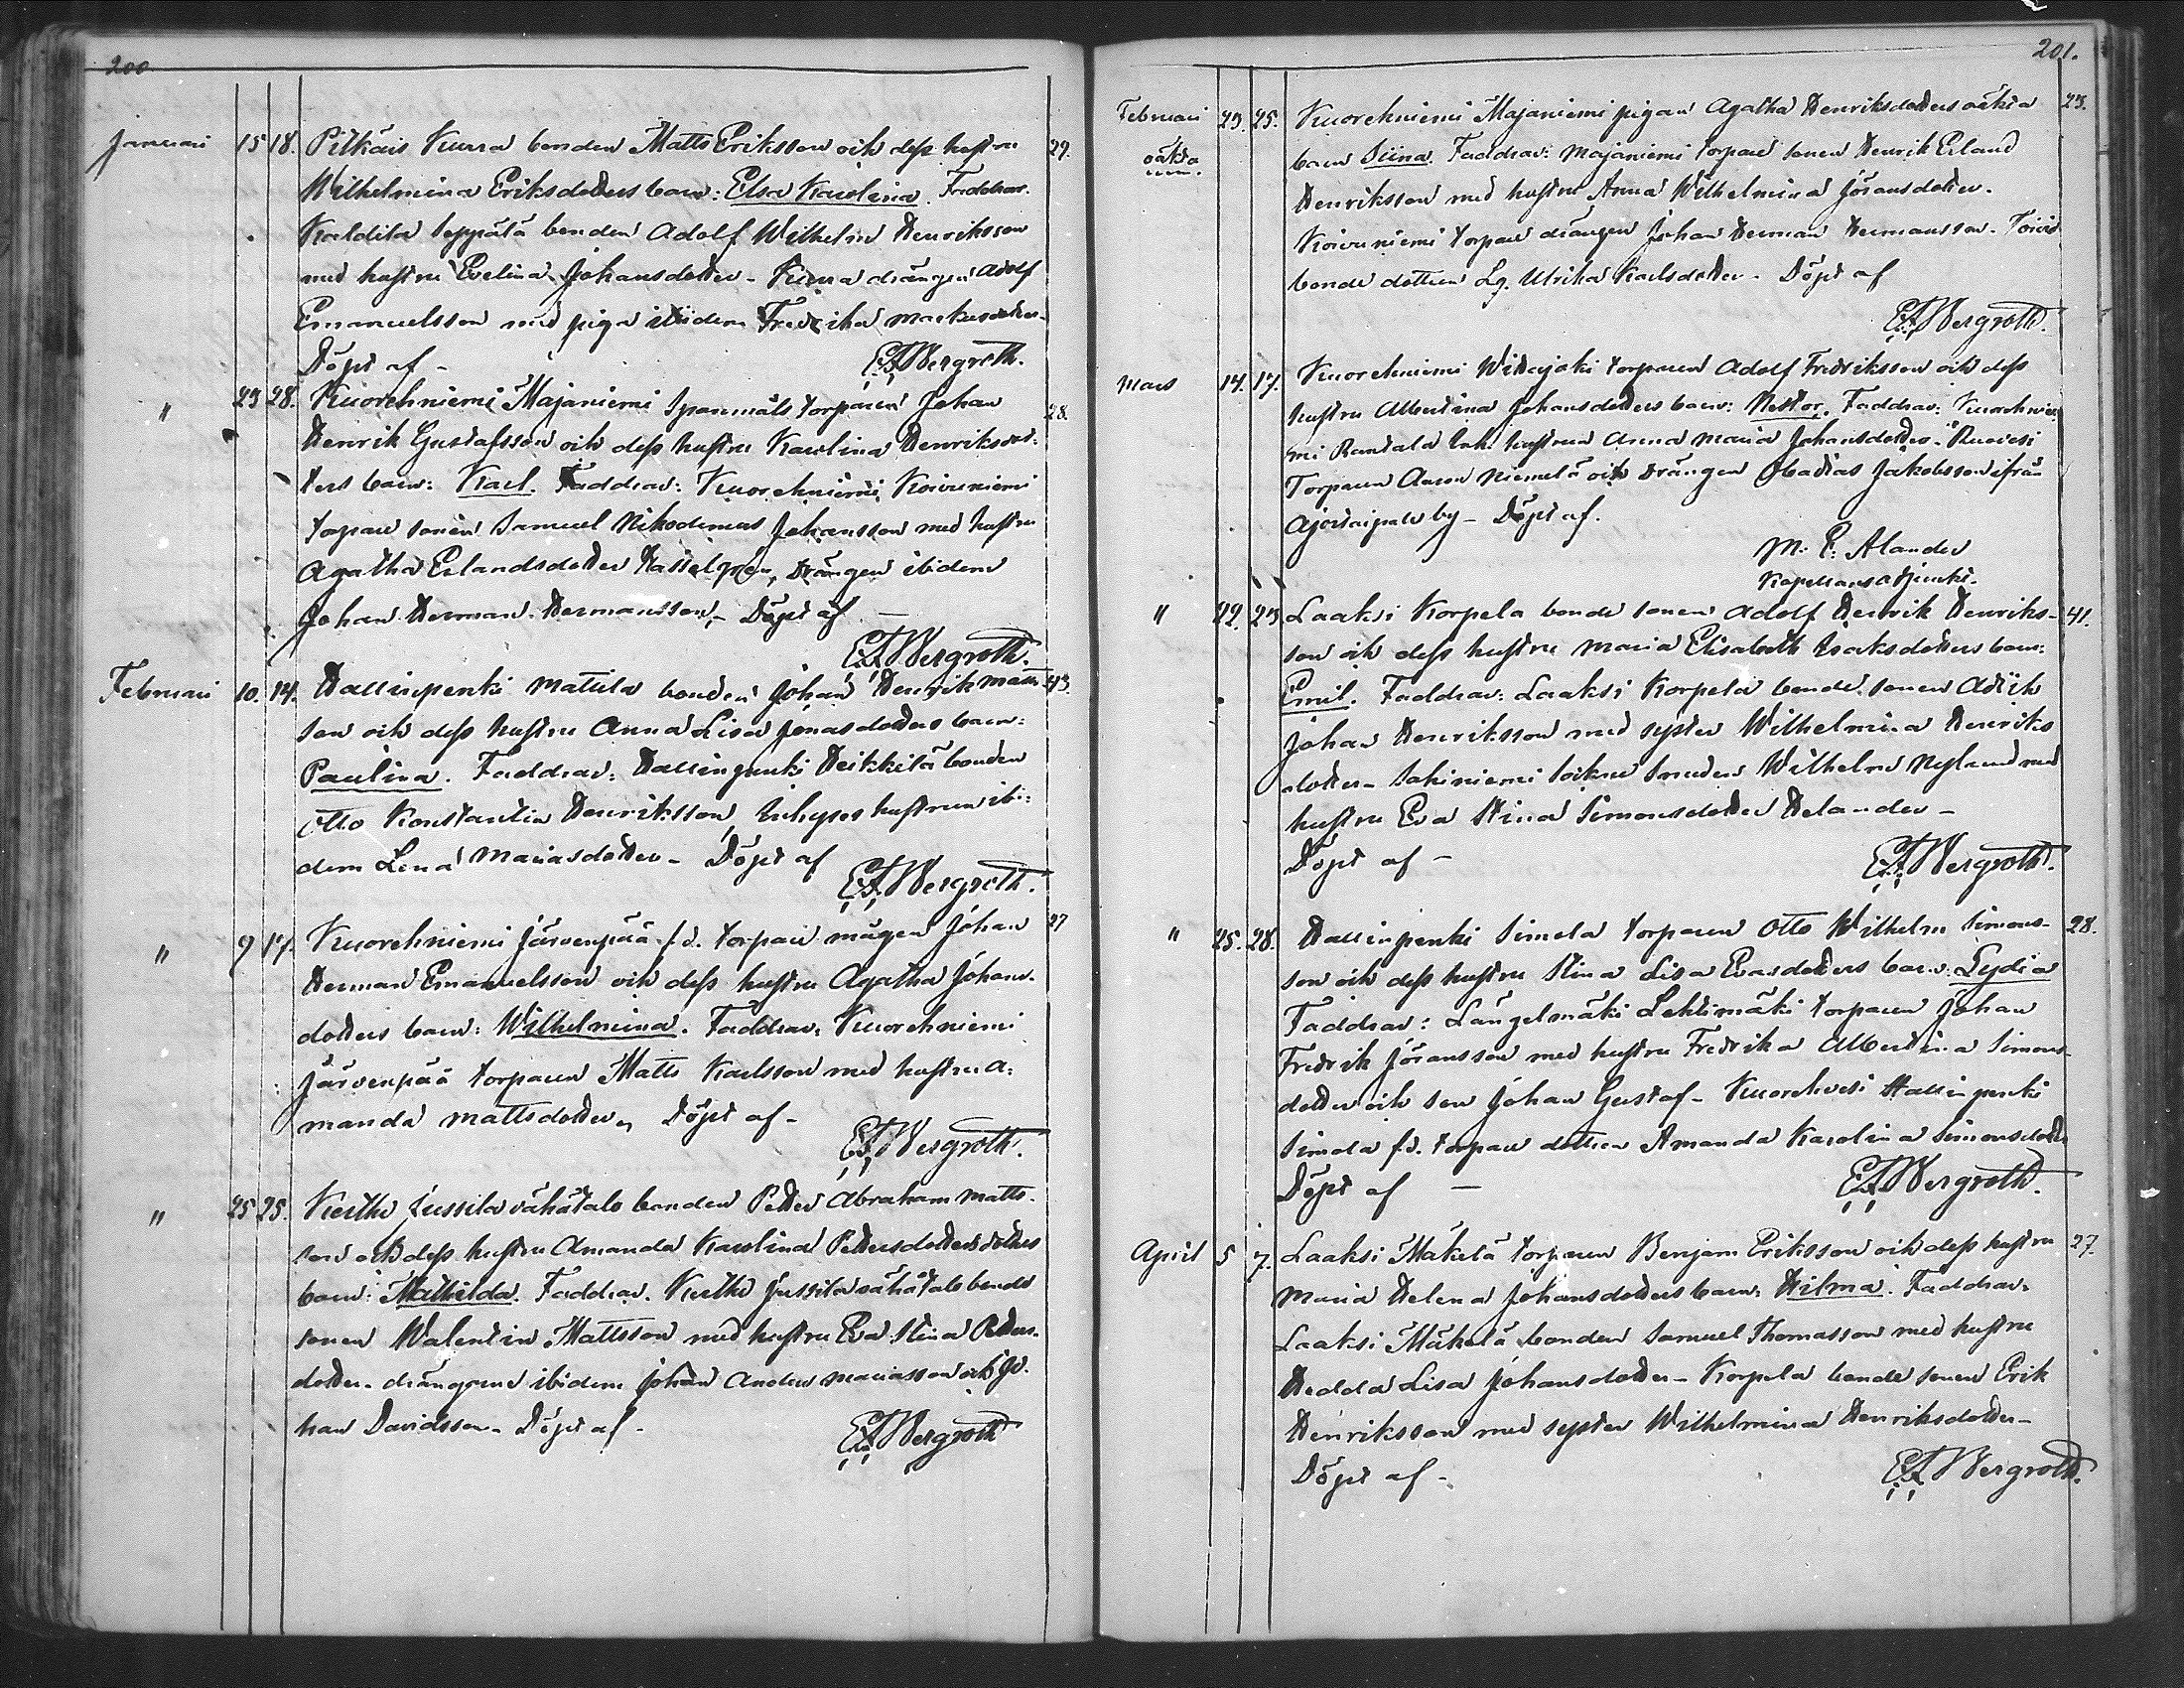 200
Januari 15 18. Pitkäis Kuura bonden Matts Eriksson och dess hustru 29.
Wilhelmina Eriksdotters barn: Elsa Karolina. Faddrar.
Kaldila Seppälä bonden Adolf Wilhelm Henriksson
med hustru Evelina Johansdotter - Kuura drängen Adolf
Emanuelsson med piga ibidem Fredrika Markusdotter -
Döpt af - E.F. Bergroth.
" 23 28. Kuorehniemi Majaniemi Spannmåls torparen Johan 28.
Henrik Gustafsson och dess hustru Karolina Henriksdot-
ters barn: Karl. Faddrar: Kuorehniemi Koivuniemi
torpare sonen Samuel Nikodemus Johansson med hustru
Agatha Erlandsdotter Hasselgrén, drängen ibidem
Johan Herman Hermansson, - Döpt af -
E.F. Bergroth.
Februari 10. 14. Hallinpenki Mattila bonden Johan Henrik Matts 43.
son och dess hustru Anna Lisa Jonasdotters barn:
Paulina. Faddrar: Hallinpenki Heikkilä bonden
Otto Konstantin Henriksson, Inhyses hustrun ibi:
dem Lena Mariasdotter - Döpt af
E.F. Bergroth.
" 9 17. Kuorehniemi Järvenpää f.d. torpare mågen Johan 27
Herman Emanuelsson och dess hustru Agatha Johans-
dotters barn: Wilhelmina. Faddrar: Kuorehniemi
Järvenpää torparen Matts Karlsson med hustru A:
manda Mattsdotter, Döpt af -
E.F. Bergroth.
" 25 25. Keitho Jussila vähätalo bonden Petter Abraham Matts-
son och dess hustru Amanda Karolina Pettersdotters
barn: Mathilda. Faddrar. Keitho Jussila vähätalo bonde
sonen Walentin Mattsson med hustru Eva Stina Petters-
dotter - drängarne ibidem Johan Anders Mariasson och Jo-
han Davidsson - Döpt af -
E.F. Bergroth
201.
Februari 23. 25. Kuorehniemi Majaniemi pigan Agatha Henriksdotters oäkta 23.
oäkta barn Siina. Faddrar: Majaniemi torpare sonen Henrik Erland
Henriksson med hustru Anna Wilhelmina Jöransdotter.
Koivuniemi torpare drängen Johan Herman Hermansson.
bonde dottren Lg. Ulrika Karlsdotter - Döpt af
E.F. Bergroth.
Mars 14. 17. Kuorehniemi Witasjoki torparen Adolf Fredriksson och dess
hustru Albertina Johansdotters barn: Nestor. Faddrar: Kuorehnie
mi Rantala Inh. hustrun Anna Maria Johansdotter - Ruovesi
Torparen Aaron Niemelä och drängen Obadias Jakobsson ifrån
Ajostaipale by - Döpt af.
M. E. Alander
Kapellansadjunkt.
" 22. 23 Laaksi Korpela bonde sonen Adolf Henrik Henriks- 41.
son och dess hustru Maria Elisabeth Isaksdotters barn:
Emil. Faddrar: Laaksi Korpela bonde sonen
Johan Henriksson med syster Wilhelmina Henriks
dotter - Sahiniemi Soikne Smeden Wilhelm Nylund med
hustru Eva Stina Simonsdotter Helander -
Döpt af -
E.F. Bergroth.
" 25. 28. Hallinpenki Simola torparen Otto Wilhelm Simons- 28.
son och dess hustru Stina Lisa Evasdotters barn: Lydia
Faddrar: Längelmäki Lehtimäki torparen Johan
Fredrik Jöransson med hustru Fredrika Albertina Simons-
dotter och son Johan Gustaf - Kuorehvesi Hallinpenki
Simola f.d. torpare dottren Amanda Karolina Simonsdotter
Döpt af -
E.F. Bergroth.
April 5 7. Laaksi Mäkelä torparen Benjam Eriksson och dess hustru 27.
Maria Helena Johansdotters barn: Hilma. Faddrar.
Laaksi Mäkelä bonden Samuel Thomasson med hustru
Hedda Lisa Johansdotter - Korpela bonde sonen Erik
Henriksson med syster Wilhelmina Henriksdotter -
Döpt af -
E.F. Bergroth.